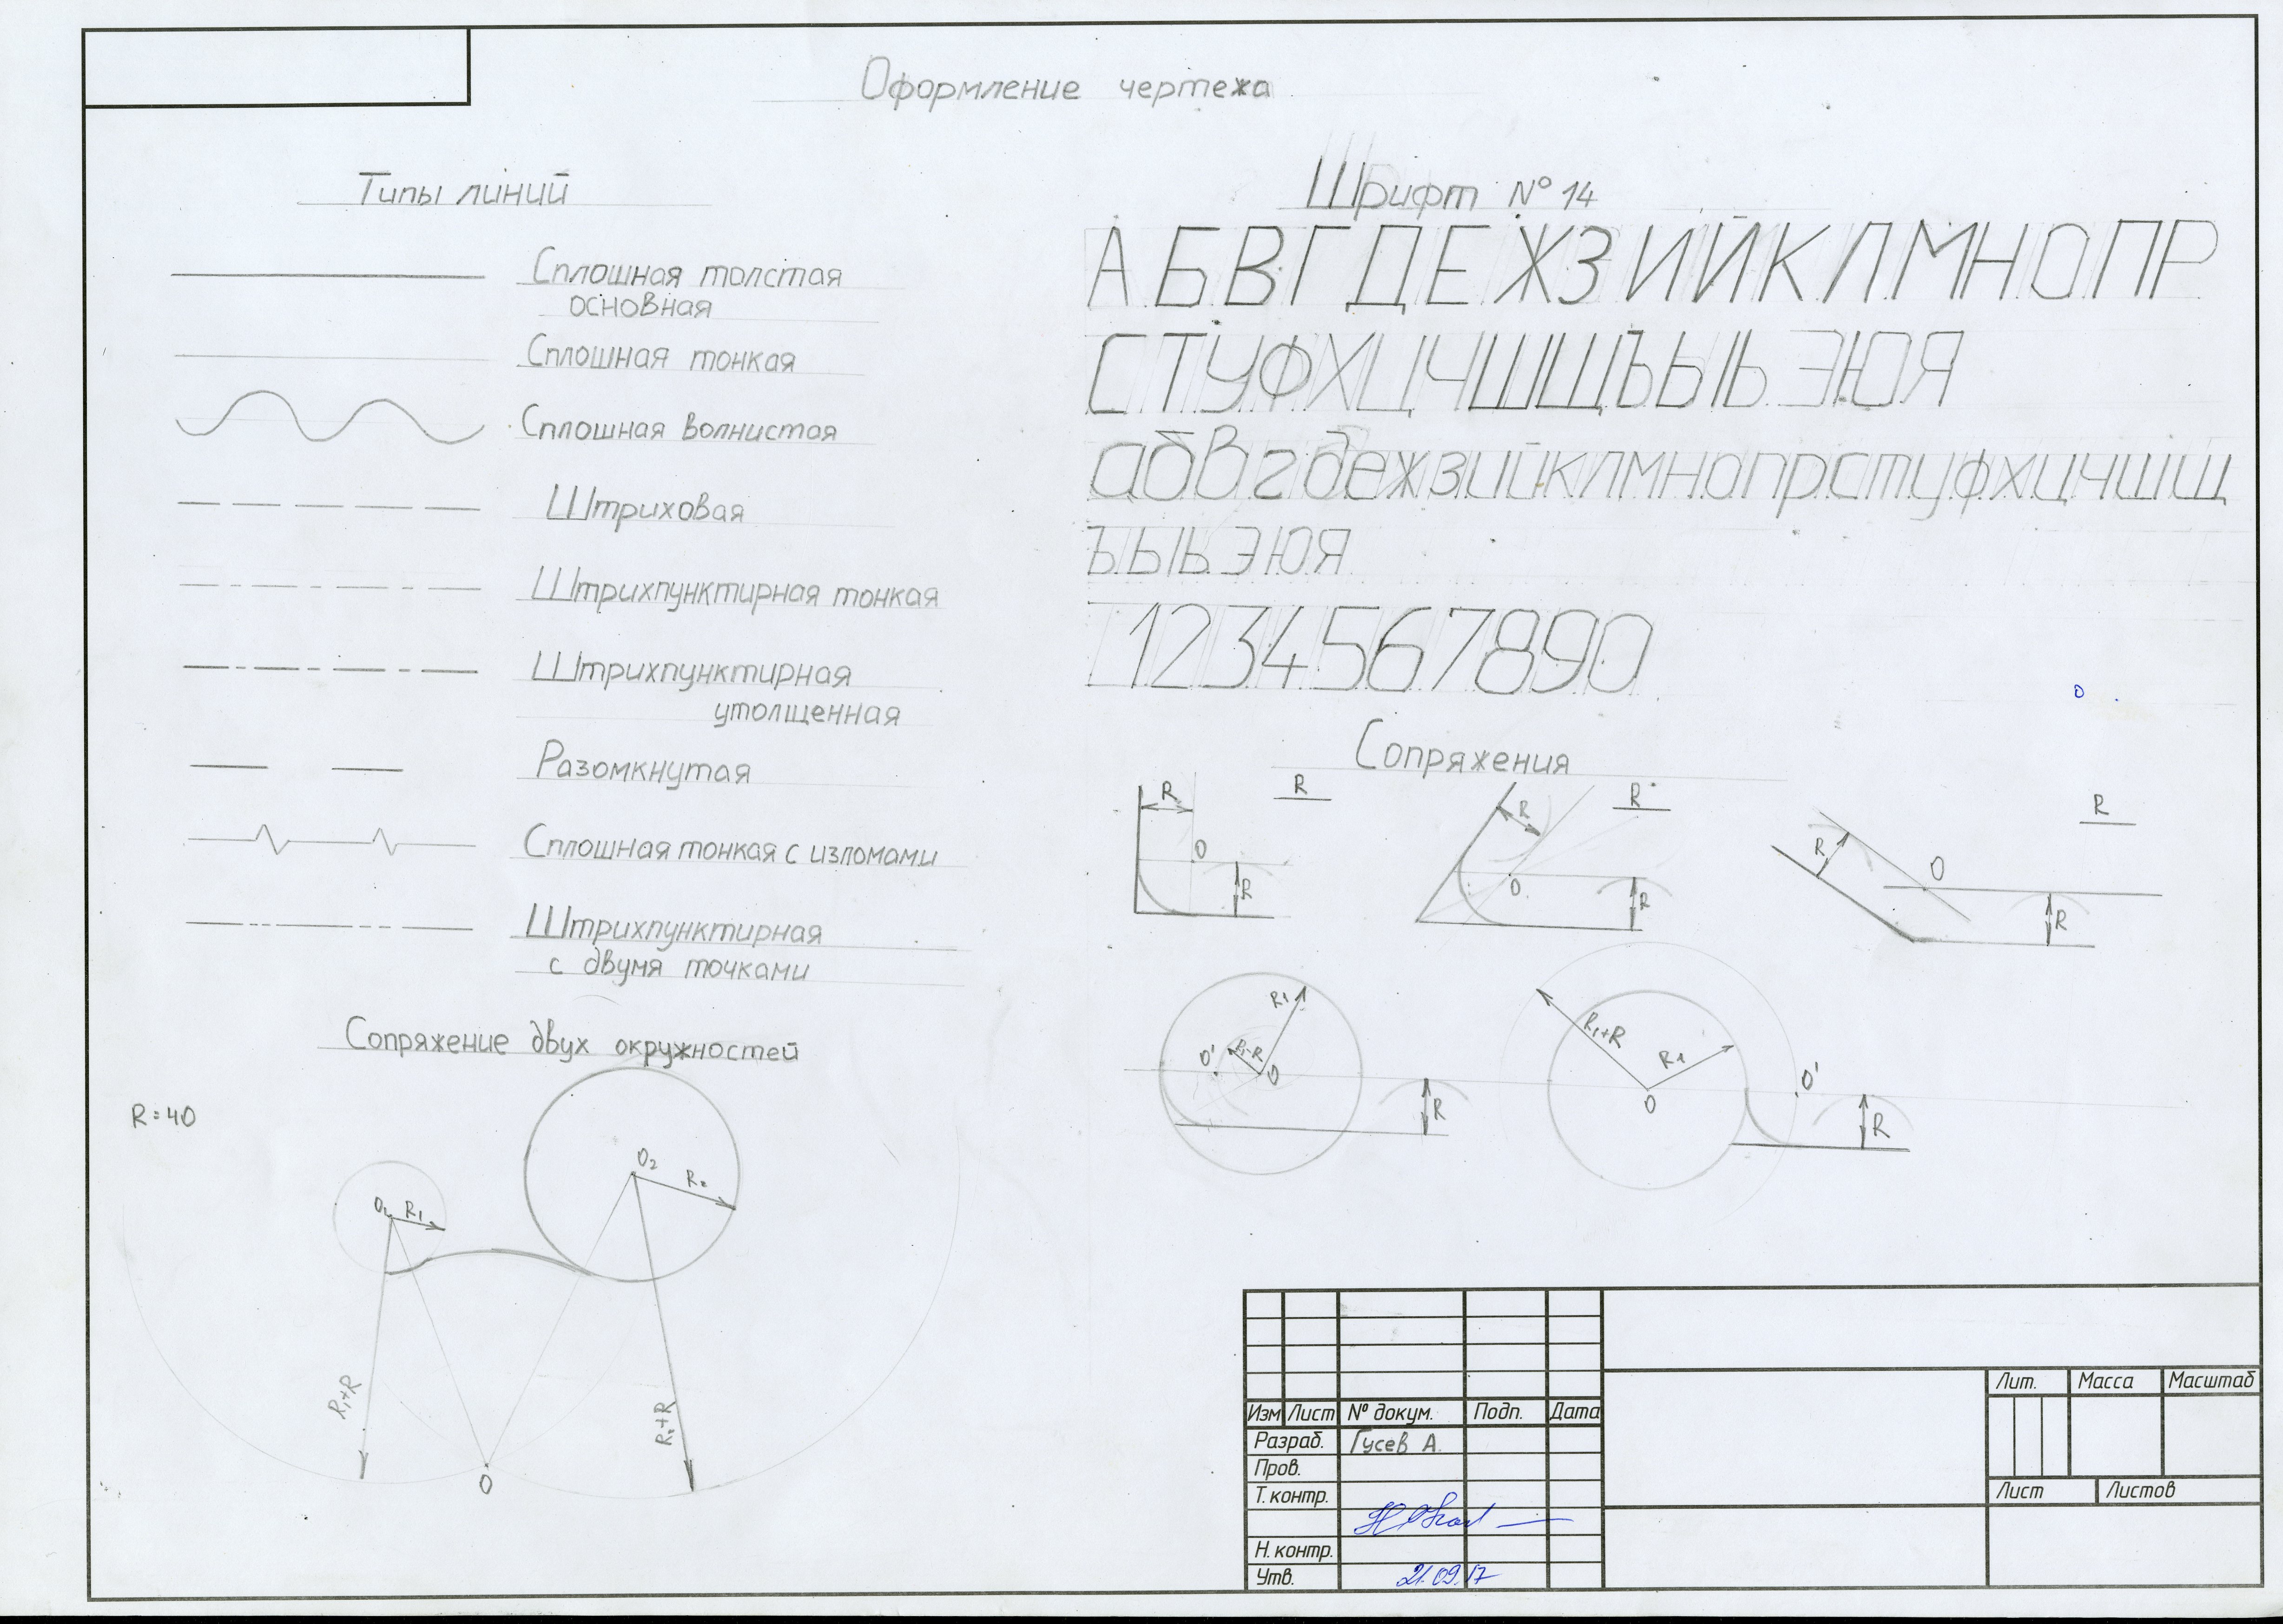 Оформление чертежа
Типы линий
Сплошная толстая
основная
Сплошная тонкая
Сплошная волнистая
Штриховая
Штрихпунктирная тонкая
Штрихпунктирная
утолщенная
Разомкнутая
Сплошная тонкая с изломами
Штрихпунктирная
с двумя точками
Сопряжение двух окружностей
R=40
O1 R1
O2
R2
R1+R
R2+R
O
Шрифт № 14
АБВГДЕЖЗИЙКЛМНОПР
СТУФХЦЧШЩЪЫЬЭЮЯ
абвгдежзийклмнопрстуфхцчшщ
ъыьэюя
1234567890
Сопряжения
R
R
O
R
R
R
O
R
R
R
O
R
R1
R1-R
O'
O
R
R1+R
R1
O
O'
R
Лит. Масса Масштаб
Изм Лист № докум. Подп. Дата
Разраб. Гусев А.
Пров.
Т. контр.
Лист Листов
Н. контр.
Утв. 21.09.17